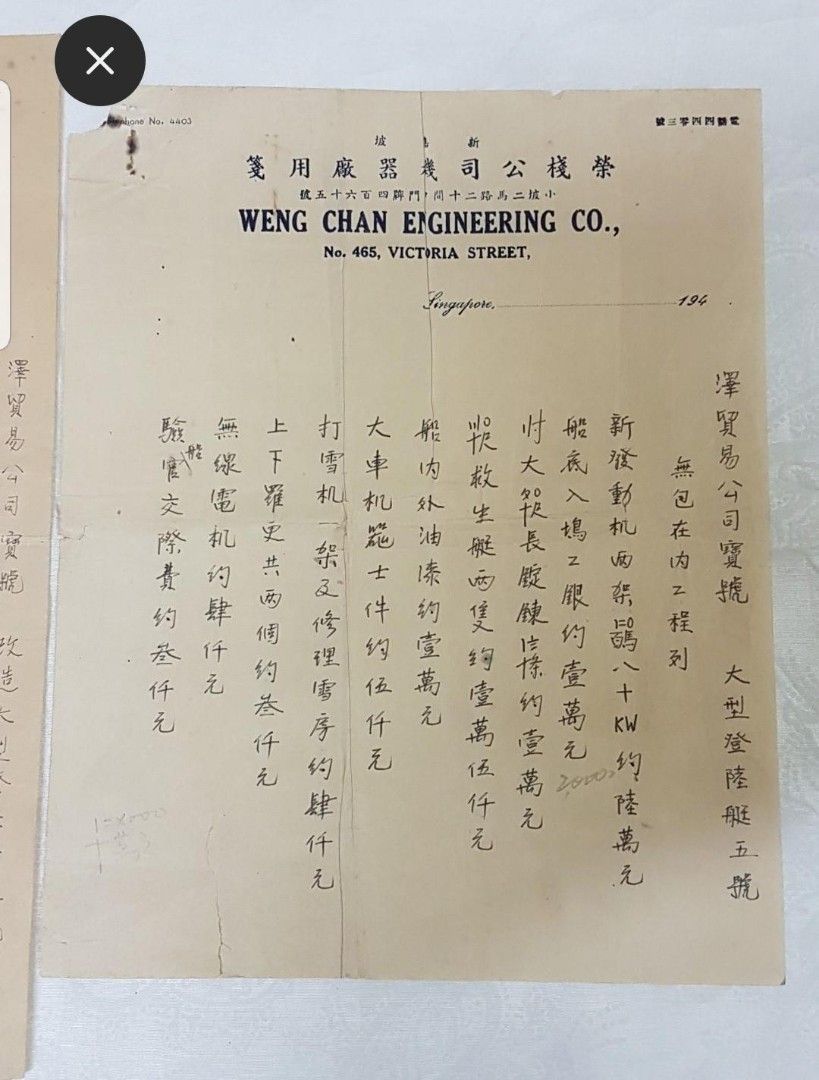 Telephone No. 4403
電話四四零三號
新嘉坡
榮棧公司機器廠用箋
小坡二馬路二十間門牌四百六十五號
WENG CHAN ENGINEERING CO.,
No. 465, VICTORIA STREET,
Singapore, 194
澤貿易公司寶號 大型登陸艇五號
無包在內工程列
新發動机両架 八十KW約陸萬元
船底入塢工銀約壹萬元
20000
大 長錠鍊 條約壹萬元
救生艇両隻約壹萬伍仟元
船內外油漆約壹萬元
大車机器士件約伍仟元
打雪机一架及修理雪房約肆仟元
上下羅更共両個約叁仟元
無線電机約肆仟元
驗船官交際費約叁仟元
澤貿易公司寶號 改造大型